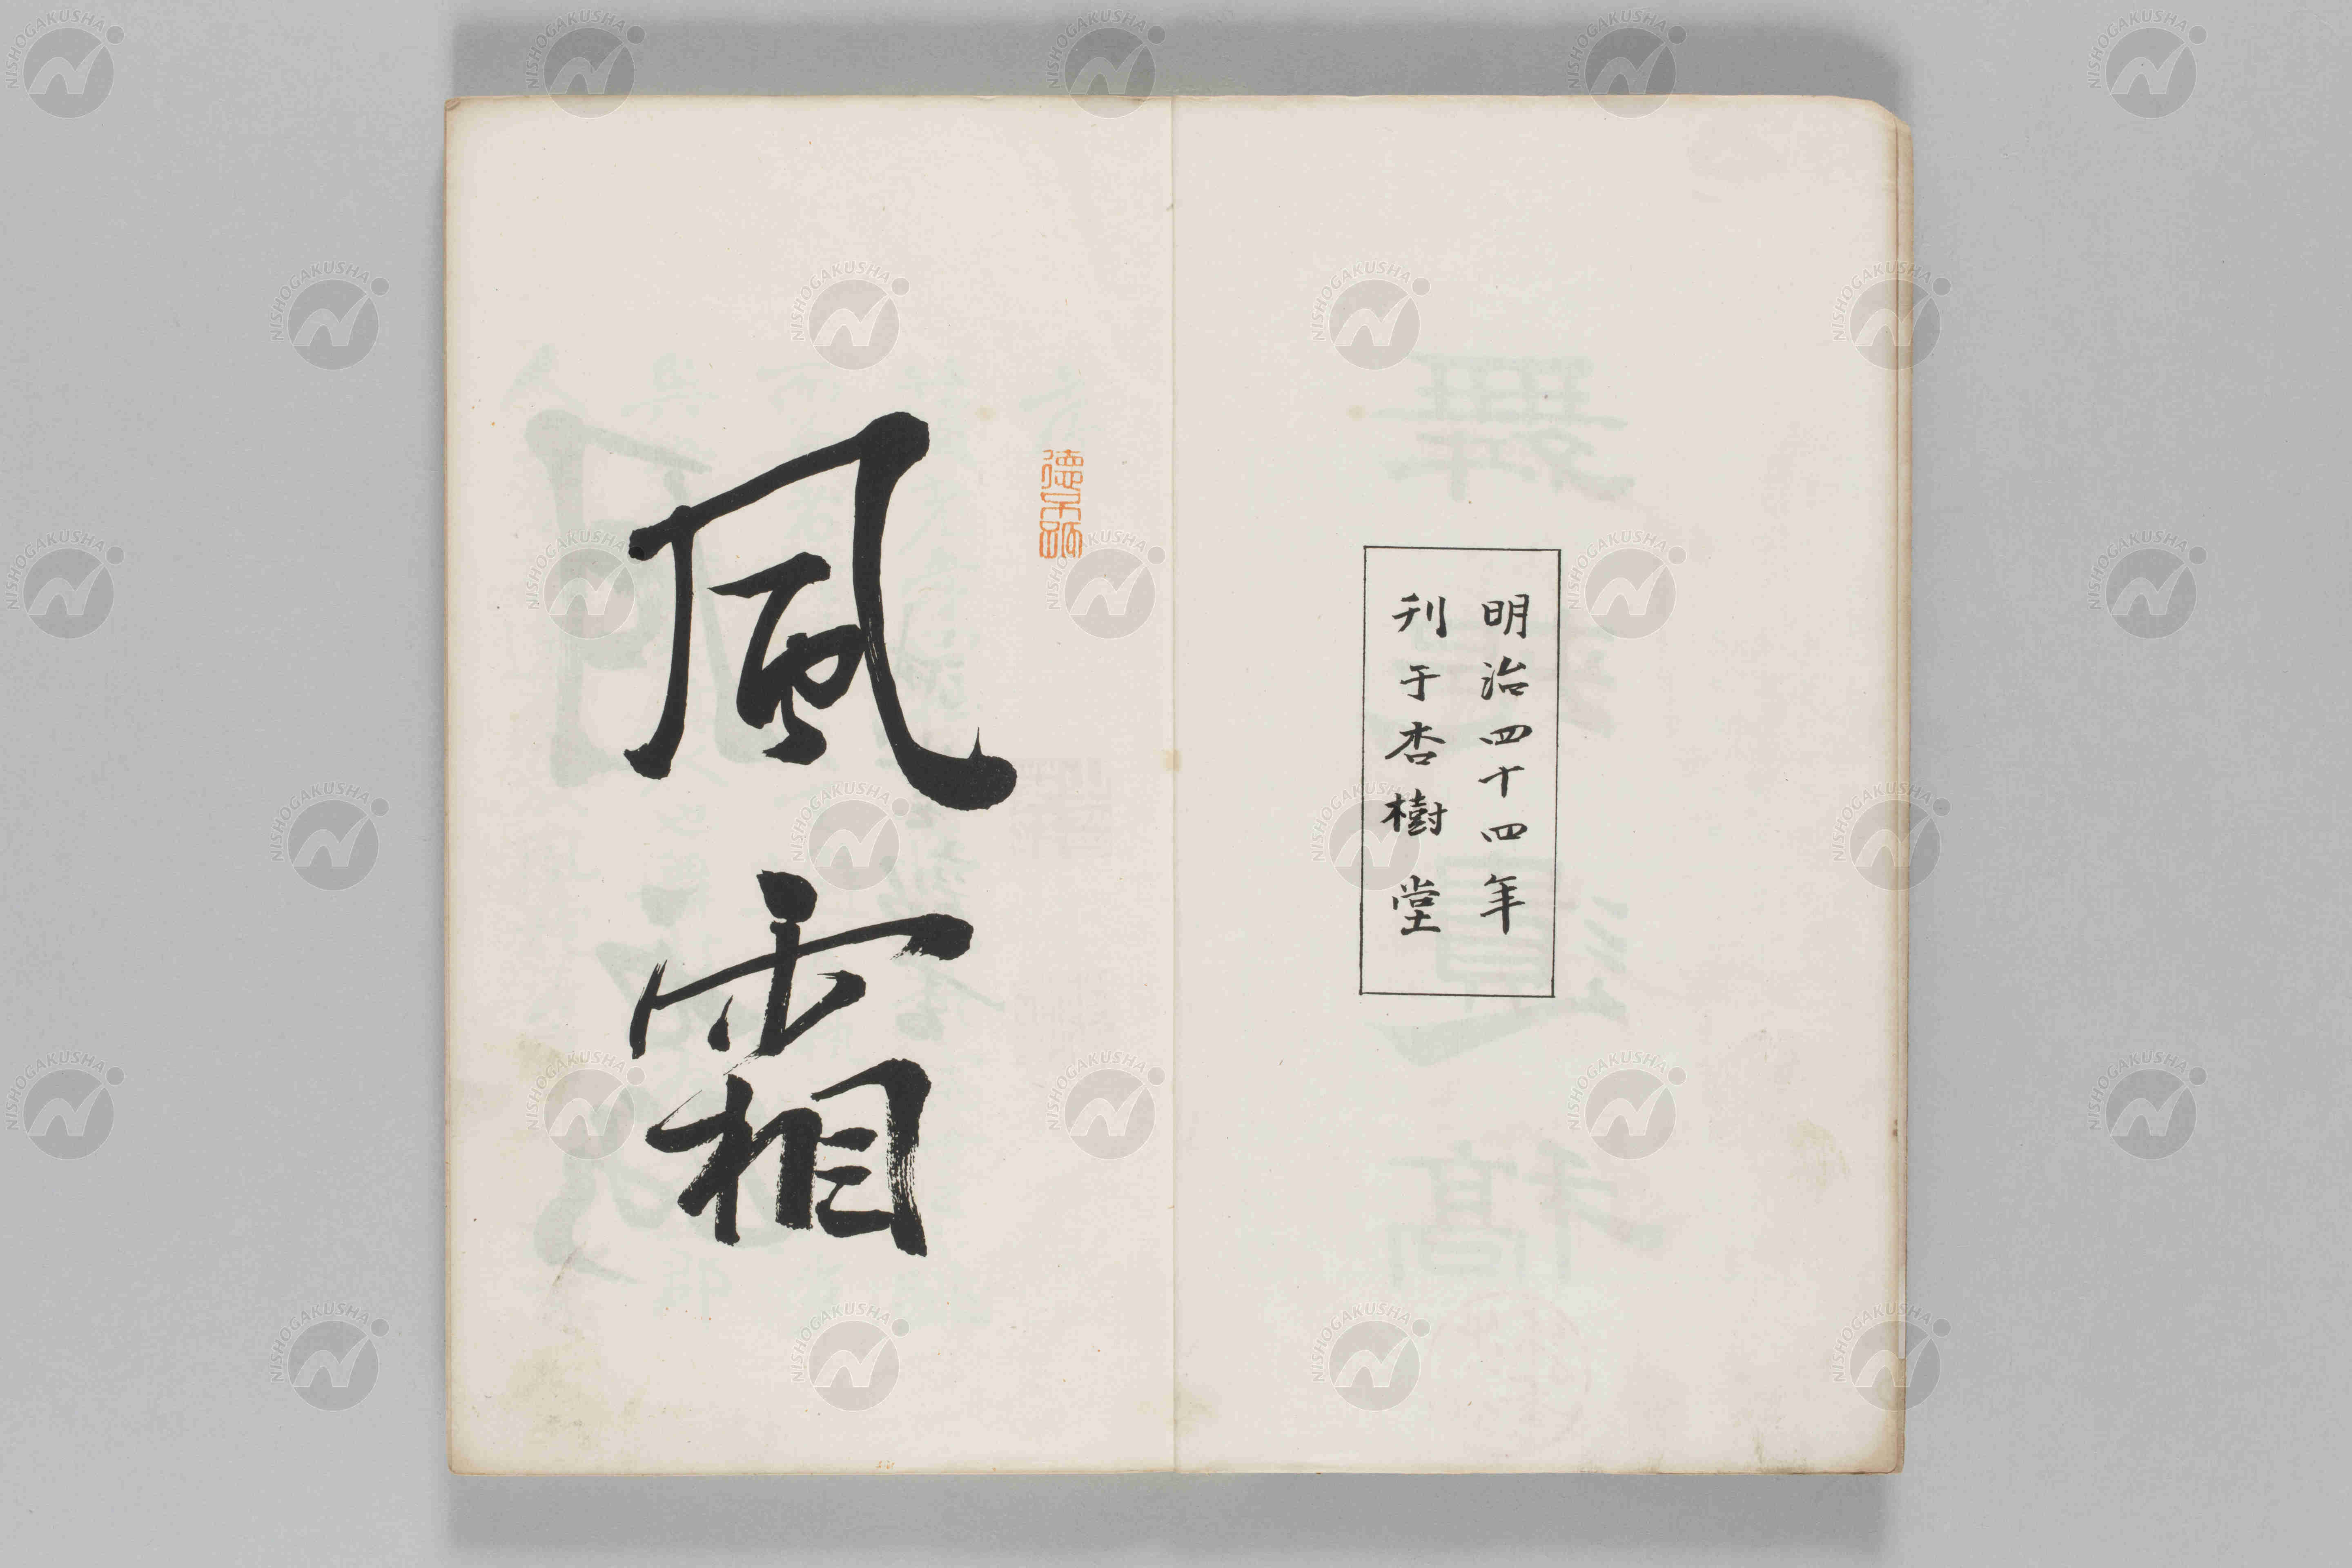 明治四十四年
刊于杏樹堂
風霜
NISHOGAKUSHA